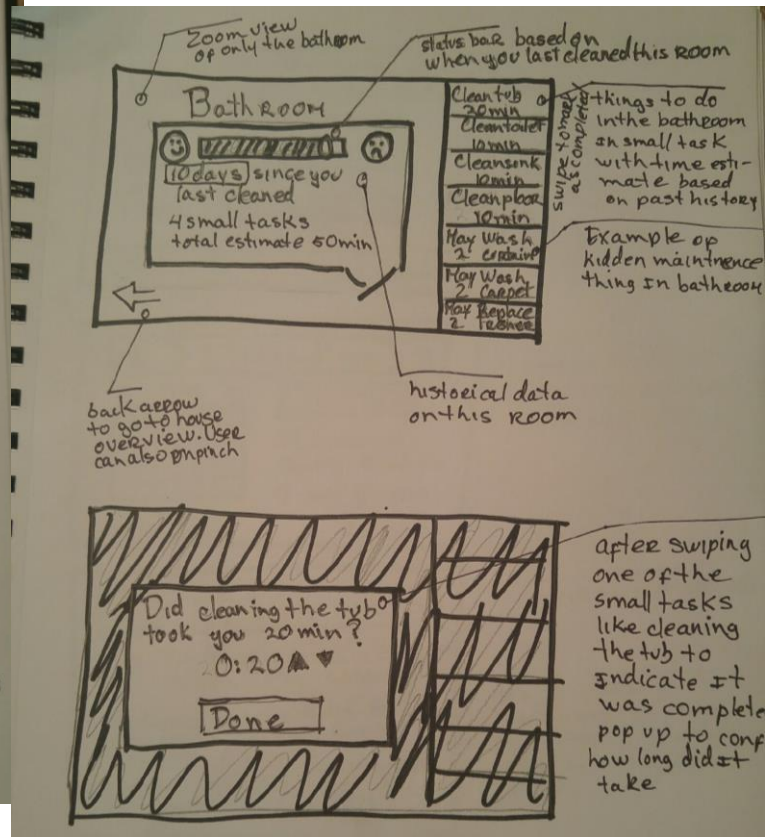 Zoom view
of only the bathroom
status bar based on
when you last cleaned this ROOM
BathROOM
10 days since you
last cleaned
4 small tasks
total estimate 50min
Clean tub
20min
Clean toilet
10min
Clean sink
10min
Clean floor
10min
May Wash
2 curtain
May Wash
2 Carpet
May Replace
2
swipe to mark
as completed
things to do
in the bathroom
in small task
with time esti-
mate based
on past history
Example of
hidden maintnence
thing in bathroom
back arrow
to go to house
overview. User
can also pinch
historical data
on this ROOM
Did cleaning the tub
took you 20 min?
0:20 ▲ ▼
Done
after swiping
one of the
small tasks
like cleaning
the tub to
indicate it
was complete
pop up to conf
how long did it
take